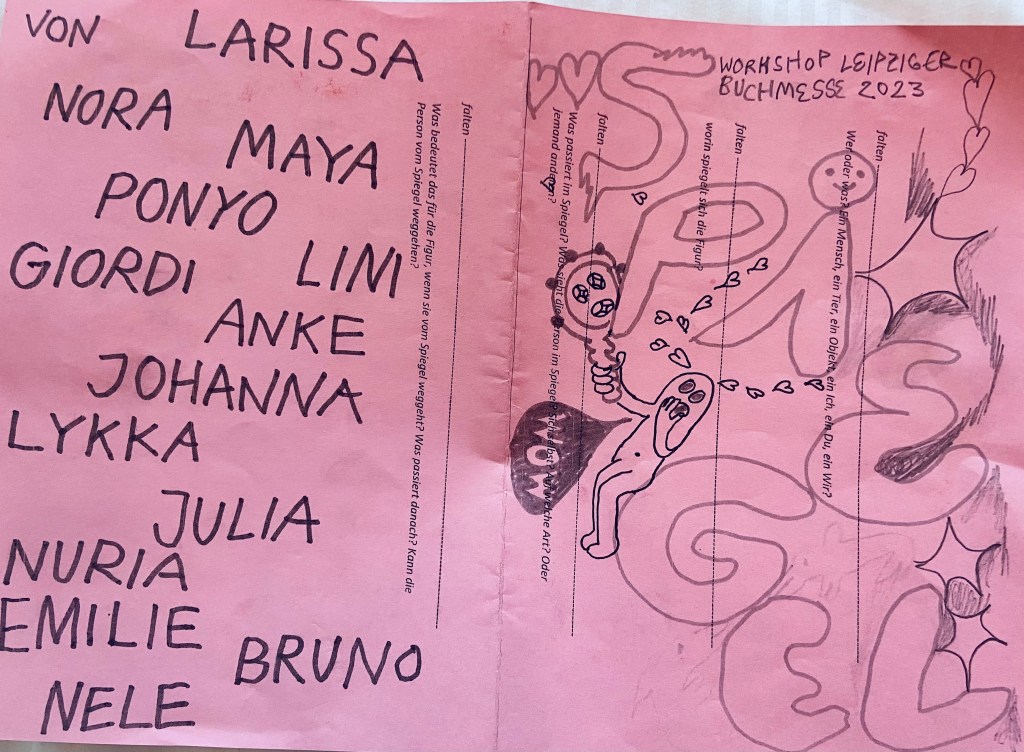 VON LARISSA
NORA
MAYA
PONYO
GIORDI LINI
ANKE
JOHANNA
LYKKA
JULIA
NURIA
EMILIE
BRUNO
NELE
WORKSHOP LEIPZIGER
BUCHMESSE 2023
SPIEGEL
WOW
falten
Wer oder was? Ein Mensch, ein Tier, ein Objekt, ein Ich, ein Du, ein Wir?
falten
worin spiegelt sich die Figur?
falten
Was passiert im Spiegel? Was sieht die Person im Spiegel? Sich selbst? Auf welche Art? Oder
jemand anderen?
falten
Was bedeutet das für die Figur, wenn sie vom Spiegel weggeht? Was passiert danach? Kann die
Person vom Spiegel weggehen?